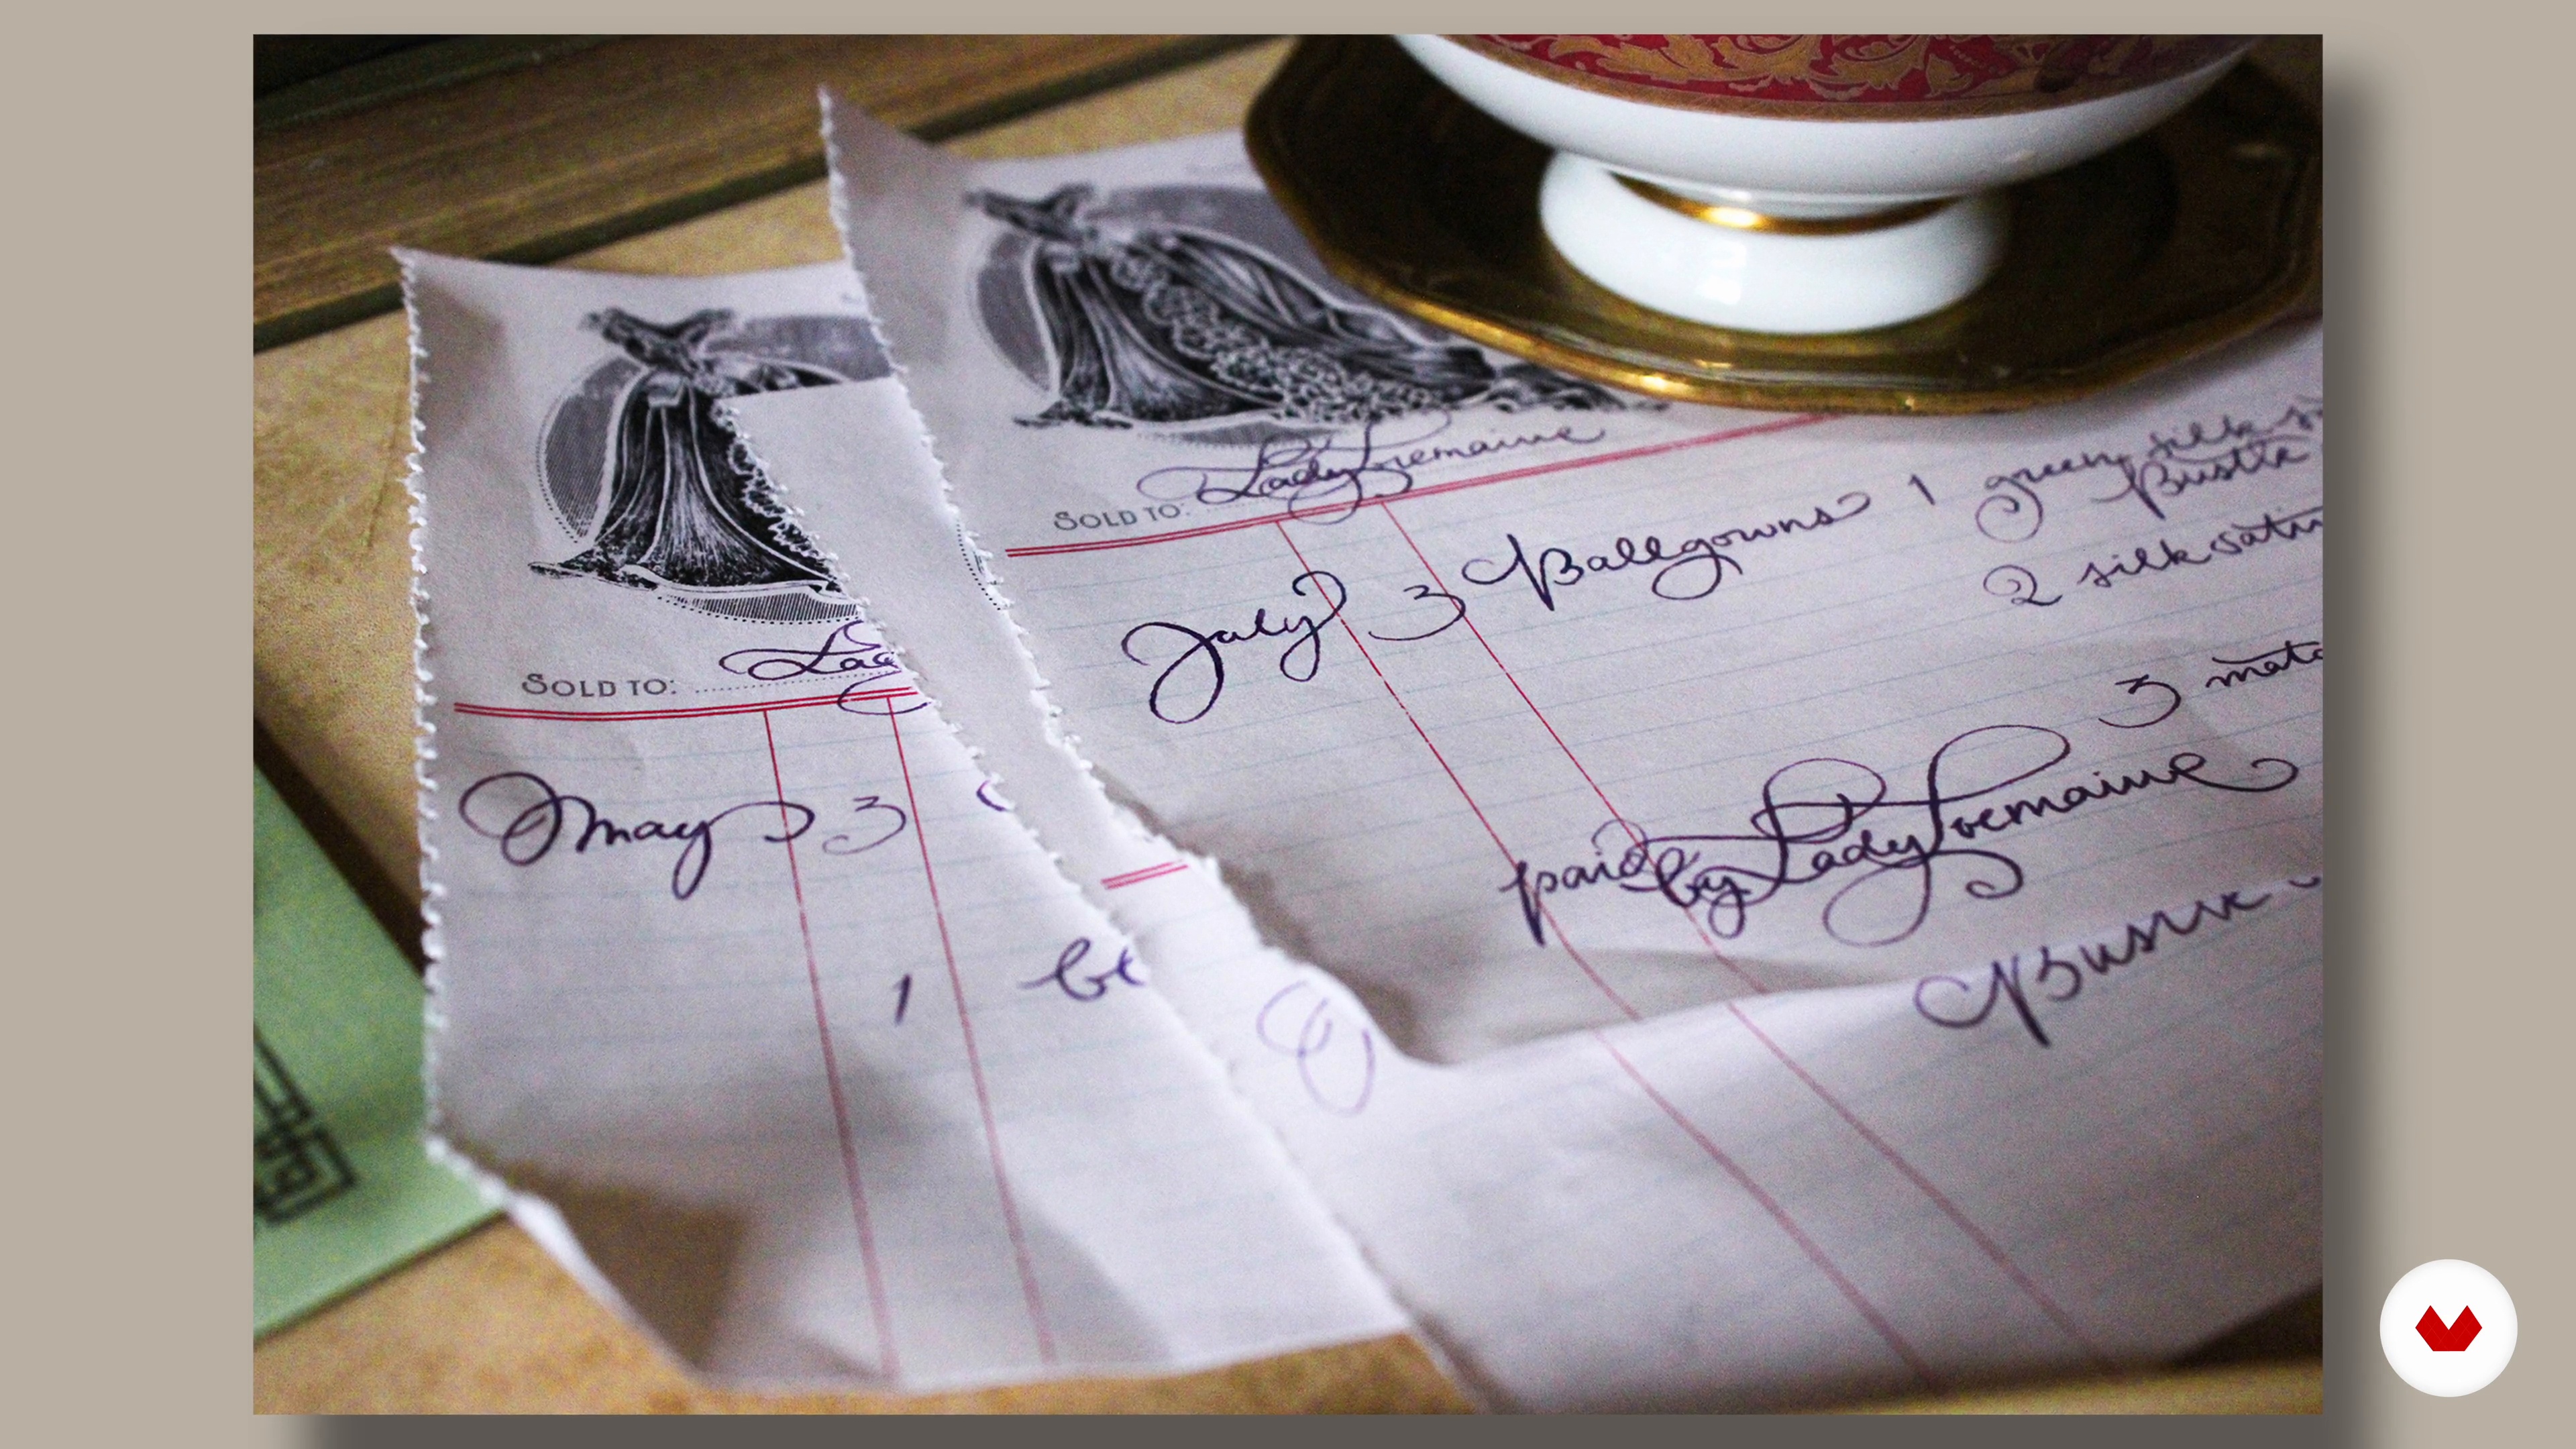 SOLD TO: Lady Tremaine
July 3 Ballgowns 1 green silk
Bustle
2 silk satin
3
paid by Lady Tremaine
SOLD TO:
May 3
1